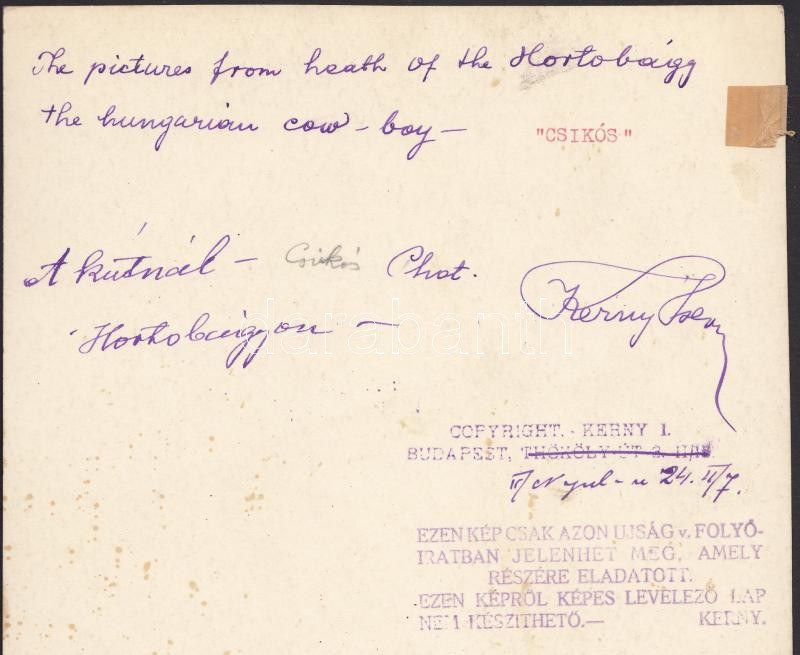 The pictures from heath of the Hortobágy
the hungarian cow-boy —
"CSIKÓS"
A kútnál — Csikós Phot.
Hortobágyon —
Kerny
darabanth
COPYRIGHT. - KERNY I.
BUDAPEST, THÖKÖLY-ÚT
II/ Nyul-u 24. II/7.
EZEN KÉP CSAK AZON UJSÁG v. FOLYÓ-
IRATBAN JELENHET MEG, AMELY
RÉSZÉRE ELADATOTT.
EZEN KÉPRŐL KÉPES LEVELEZŐ LAP
NEM KÉSZITHETŐ.— KERNY.